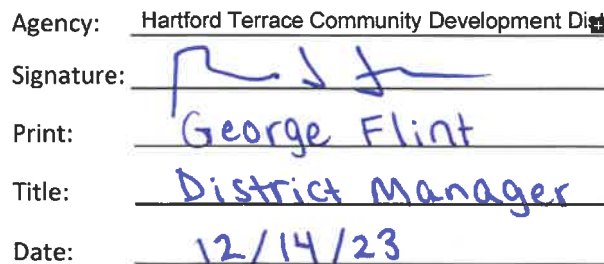 Agency: Hartford Terrace Community Development Dist
Signature:
Print: George Flint
Title: District Manager
Date: 12/14/23